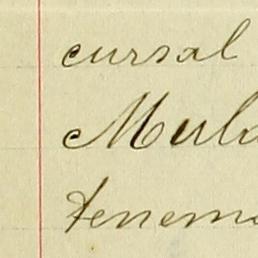 cursal
Mula
tenem